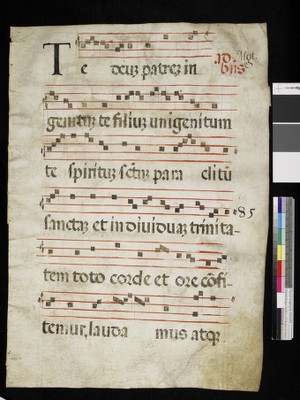 Te deuz patrez in
genituz te filiuz unigenitum
te spirituz sctuz para clitū
sanctaz et individuaz trinita-
85
tem toto corde et ore cōfi-
temur, lauda mus atqz